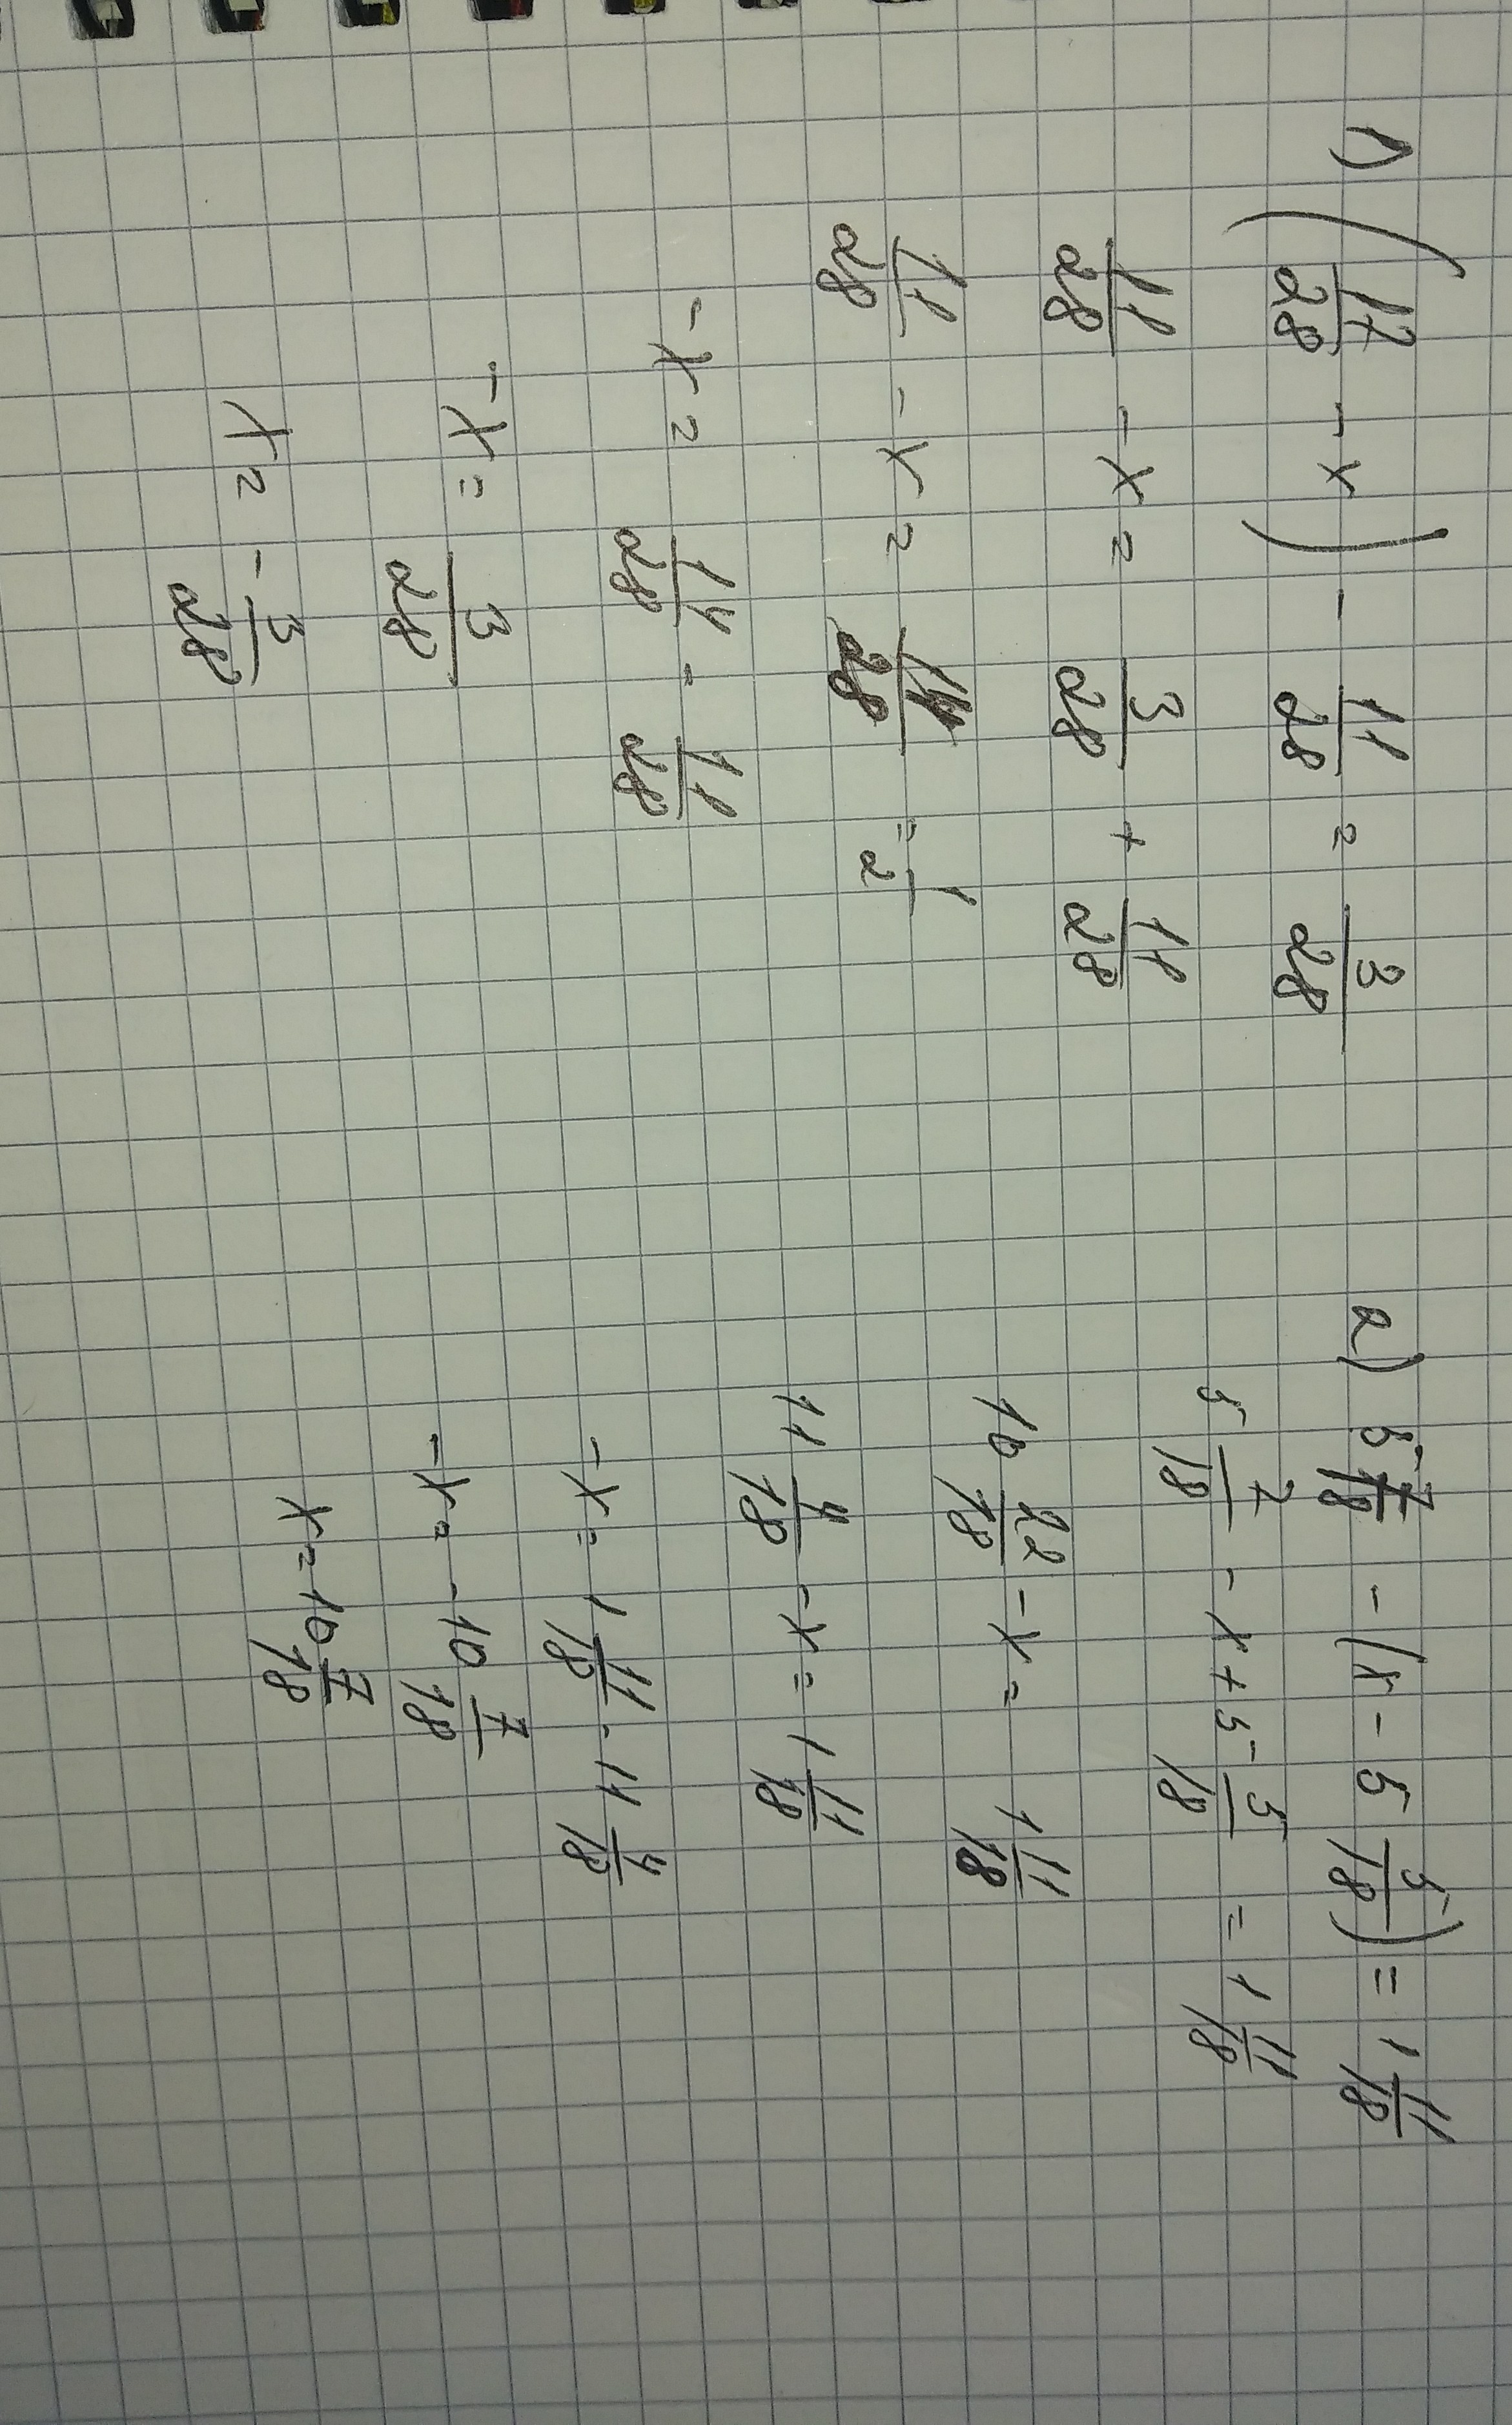 1) (17/28 - x) - 11/28 = 3/28
11/28 - x = 3/28 + 11/28
11/28 - x = 14/28 = 1/2
-x = 14/28 - 11/28
-x = 3/28
x = -3/28
2) 5 7/18 - (x - 5 5/18) = 1 11/18
5 7/18 - x + 5 5/18 = 1 11/18
10 22/18 - x = 1 11/18
11 4/18 - x = 1 11/18
-x = 1 11/18 - 11 4/18
-x = -10 7/18
x = 10 7/18